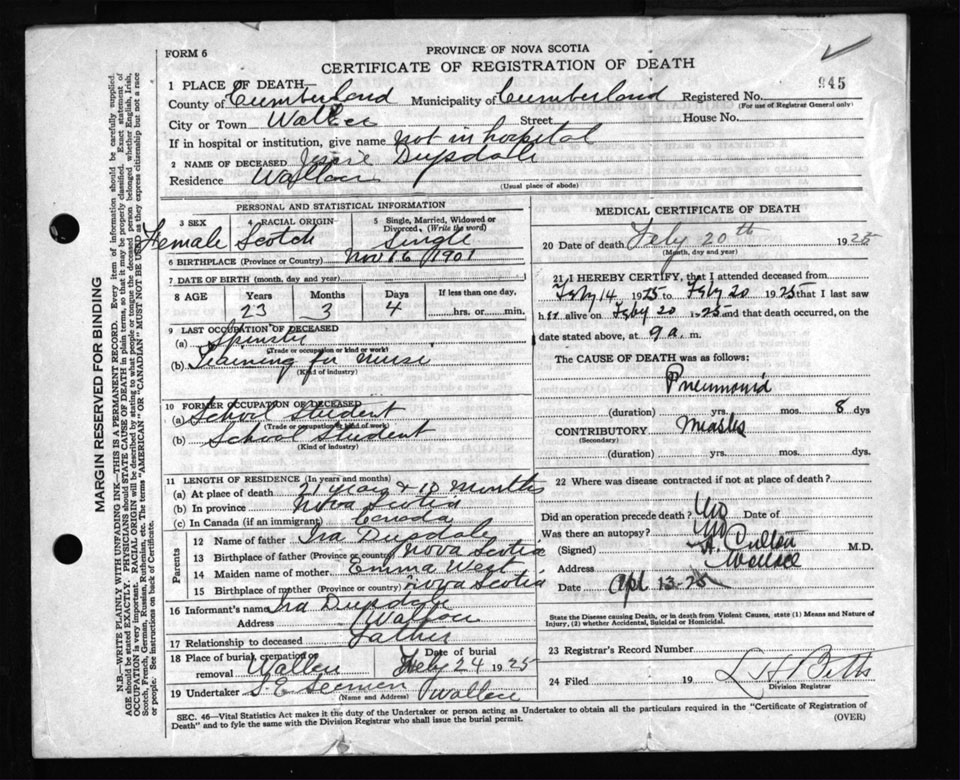 FORM 6
PROVINCE OF NOVA SCOTIA
CERTIFICATE OF REGISTRATION OF DEATH
945
1 PLACE OF DEATH
County of Cumberland Municipality of Cumberland Registered No.
(For use of Registrar General only)
City or Town Wallace Street House No.
If in hospital or institution, give name not in hospital
2 NAME OF DECEASED Jessie
Residence Wallace
(Usual place of abode)
PERSONAL AND STATISTICAL INFORMATION
3 SEX 4 RACIAL ORIGIN 5 Single, Married, Widowed or Divorced, (Write the word)
Female Scotch Single
6 BIRTHPLACE (Province or Country) Nov 16 1901
7 DATE OF BIRTH (month, day and year)
8 AGE Years Months Days If less than one day,
23 3 4 hrs. or min.
9 LAST OCCUPATION OF DECEASED
(a) Spinster
(Trade or occupation or kind or work)
(b) Training for Nurse
(Kind of industry)
10 FORMER OCCUPATION OF DECEASED
(a) School Student
(Trade or occupation or kind of work)
(b) School Student
(Kind of industry)
11 LENGTH OF RESIDENCE (In years and months)
(a) At place of death 21 years & 10 months
(b) In province Nova Scotia
(c) In Canada (if an immigrant) Canada
Parents
12 Name of father Ira
13 Birthplace of father (Province or country) Nova Scotia
14 Maiden name of mother Emma West
15 Birthplace of mother (Province or country) Nova Scotia
16 Informant's name Ira
Address Wallace
17 Relationship to deceased Father
18 Place of burial, cremation or removal Wallace Date of burial Feby 24 1925
19 Undertaker Wallace
(Name and Address)
MEDICAL CERTIFICATE OF DEATH
20 Date of death Feby 20th 1925
(Month, day and year)
21 I HEREBY CERTIFY, that I attended deceased from
Feby 14 1925 to Feby 20 1925 that I last saw
her alive on Feby 20 1925 and that death occurred, on the
date stated above, at 9 a. m.
The CAUSE OF DEATH was as follows:
Pneumonia
(duration) yrs. mos. 8 dys
CONTRIBUTORY Measles
(Secondary)
(duration) yrs. mos. dys.
22 Where was disease contracted if not at place of death?
Did an operation precede death? No Date of
Was there an autopsy? No
(Signed) M.D.
Address Wallace
Date Apl 13-25
State the Disease causing Death, or in death from Violent Causes, state (1) Means and Nature of Injury, (2) whether Accidental, Suicidal or Homicidal.
23 Registrar's Record Number
24 Filed 19 L. H. Betts
Division Registrar
SEC. 46—Vital Statistics Act makes it the duty of the Undertaker or person acting as Undertaker to obtain all the particulars required in the "Certificate of Registration of
Death" and to fyle the same with the Division Registrar who shall issue the burial permit.
(OVER)
MARGIN RESERVED FOR BINDING
N.B.—WRITE PLAINLY WITH UNFADING INK—THIS IS A PERMANENT RECORD. Every item of information should be carefully supplied.
AGE should be stated EXACTLY. PHYSICIANS should STATE CAUSE OF DEATH in plain terms, so that it may be properly classified. Exact statement of
OCCUPATION is very important. RACIAL ORIGIN will be described by stating to what people or tongue the deceased person belonged whether English, Irish,
Scotch, French, German, Russian, Ruthenian, etc. The terms "AMERICAN" OR "CANADIAN" MUST NOT BE USED as they express citizenship but not a race
or people. See instructions on back of Certificate.